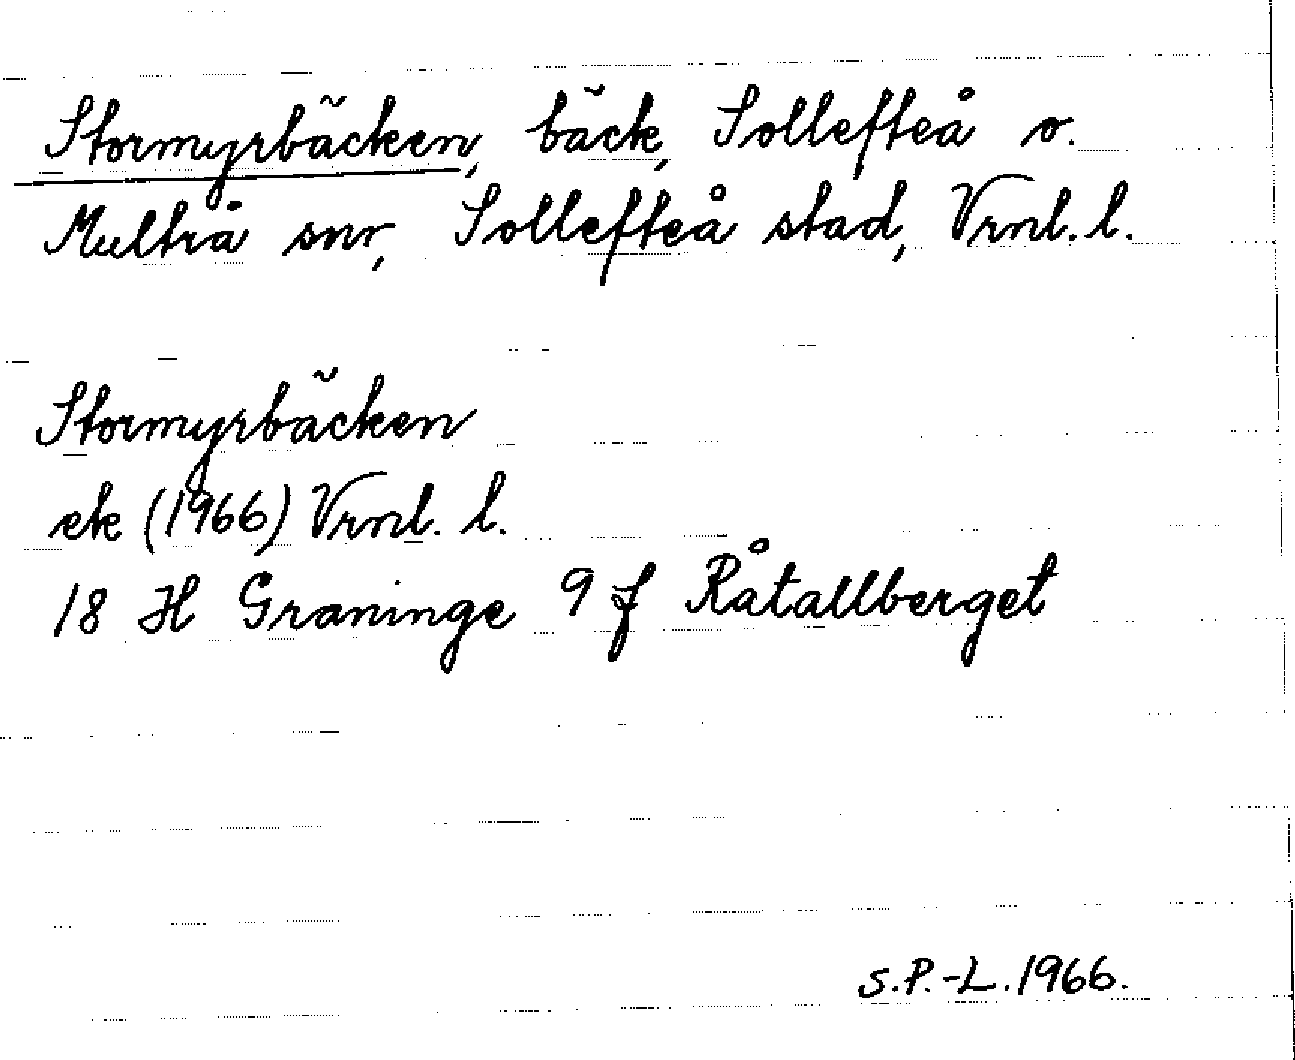 Stormyrbäcken, bäck, Sollefteå o.
Multrå snr, Sollefteå stad, Vrnl. l.
Stormyrbäcken
ek (1966) Vrnl. l.
18 H Graninge 9 f Råtallberget
S.P.-L. 1966.